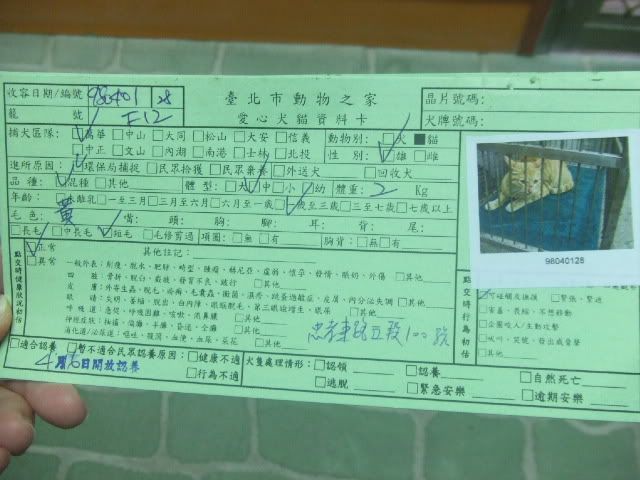 收容日期/編號 980401 28
臺北市動物之家
晶片號碼:
籠 號 F12
愛心犬貓資料卡
犬牌號碼:
捕犬區隊: □萬華 □中山 □大同 □松山 □大安 □信義 動物別: □犬 ■貓
□中正 □文山 □內湖 □南港 □士林 □北投 性 別: □雄 □雌
進所原因: □環保局捕捉 □民眾拾獲 □民眾棄養 □外送犬 □回收犬
品 種: □混種 □其他 體 型: □大 □中 □小 □幼 體重: 2 Kg
年齡: □未離乳 □一至三月 □三月至六月 □六月至一歲 □一歲至三歲 □三至七歲 □七歲以上
毛 色: 黃 嘴: 頭: 胸: 腳: 耳: 背: 尾:
□長毛 □中長毛 □短毛 □毛修剪過 項圈: □無 □有 胸背: □無 □有
98040128
點交時健康狀況初估
□正常
□異常
其他註記:
一般外表: 削瘦、脫水、肥胖、畸型、腫瘤、赫尼亞、虛弱、懷孕、發情、哺奶、外傷 □其他
四 肢: 骨折、脫臼、截肢、發育不良、跛行 □其他
皮 膚: 外寄生蟲、脫毛、疥癬、毛囊蟲、黴菌、濕疹、跳蚤過敏症、皮屑、內分泌失調 □其他
眼 睛: 失明、萎縮、脫出、白內障、眼瞼脫毛、第三眼瞼增生、眼屎 □其他
呼吸道: 急促、呼吸困難、咳嗽、流鼻膿 □其他
神經症狀: 抽搐、偏癱、半癱、昏迷、全癱 □其他
消化道/泌尿道: 嘔吐、腹瀉、血便、血尿、 □其他
忠孝東路五段100號
點交時行為初估
□可碰觸及撫摸 □緊張、緊迫
□害羞、畏縮、不想移動
□企圖咬人/主動攻擊
□吠叫、哭號、發出威脅聲
□其他
□適合認養 □暫不適合民眾認養原因: □健康不適
□行為不適
4月6日開放認養
犬隻處理情形: □認領 □認養 □自然死亡
□逃脫 □緊急安樂 □逾期安樂